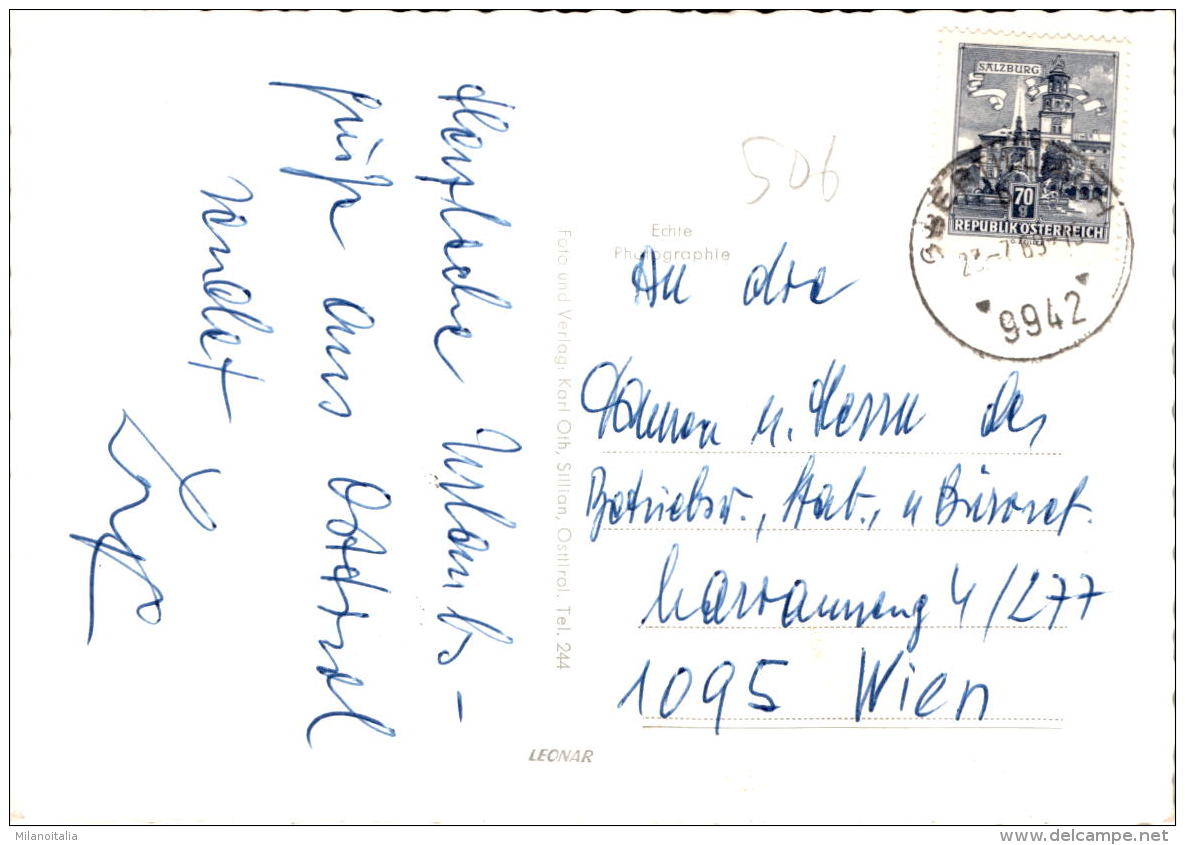 Herzliche Urlaubs-
grüße aus Osttirol
sendet
506
Echte
Photographie
Foto und Verlag: Karl Oth, Sillian, Osttirol. Tel. 244
SALZBURG
70
g
REPUBLIK ÖSTERREICH
9942
An die
Damen u. Herrn der
Betriebsr., Stat., u Bürorat.
4/277
1095 Wien
LEONAR
Milanoitalia
www.delcampe.net